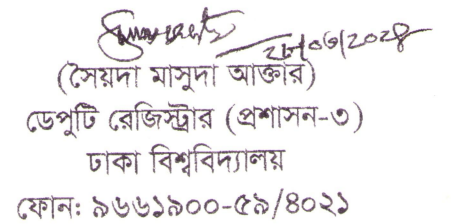 (সৈয়দা মাসুদা আক্তার)
ডেপুটি রেজিস্ট্রার (প্রশাসন-৩)
ঢাকা বিশ্ববিদ্যালয়
ফোন: ৯৬৬১৯০০-৫৯/৪০২১